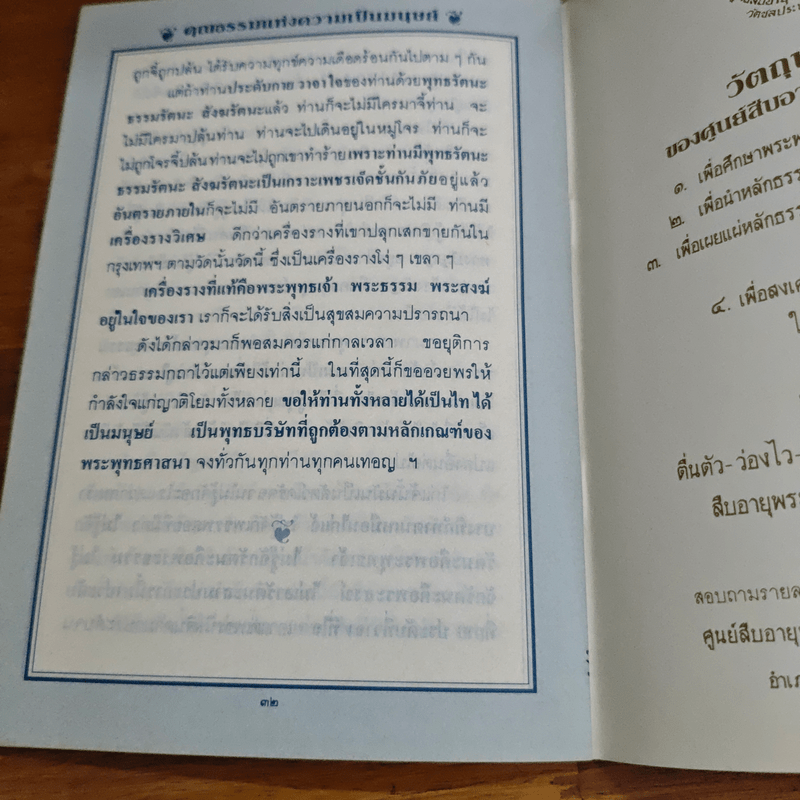 คุณธรรมแห่งความเป็นมนุษย์
ถูกจี้ถูกปล้น ได้รับความทุกข์ความเดือดร้อนกันไปตาม ๆ กัน
แต่ถ้าท่านประดับกาย วาจา ใจของท่านด้วยพุทธรัตนะ
ธรรมรัตนะ สังฆรัตนะแล้ว ท่านก็จะไม่มีใครมาจี้ท่าน จะ
ไม่มีใครมาปล้นท่าน ท่านจะไปเดินอยู่ในหมู่โจร ท่านก็จะ
ไม่ถูกโจรจี้ปล้นท่านจะไม่ถูกเขาทำร้ายเพราะท่านมีพุทธรัตนะ
ธรรมรัตนะ สังฆรัตนะเป็นเกราะเพชรเจ็ดชั้นกันภัยอยู่แล้ว
อันตรายภายในก็จะไม่มี อันตรายภายนอกก็จะไม่มี ท่านมี
เครื่องรางวิเศษ ดีกว่าเครื่องรางที่เขาปลุกเสกขายกันใน
กรุงเทพฯ ตามวัดนั้นวัดนี้ ซึ่งเป็นเครื่องรางโง่ ๆ เขลา ๆ
เครื่องรางที่แท้คือพระพุทธเจ้า พระธรรม พระสงฆ์
อยู่ในใจของเรา เราก็จะได้รับสิ่งเป็นสุขสมความปรารถนา
ดังได้กล่าวมาก็พอสมควรแก่กาลเวลา ขอยุติการ
กล่าวธรรมกถาไว้แต่เพียงเท่านี้ ในที่สุดนี้ก็ขออวยพรให้
กำลังใจแก่ญาติโยมทั้งหลาย ขอให้ท่านทั้งหลายได้เป็นไท ได้
เป็นมนุษย์ เป็นพุทธบริษัทที่ถูกต้องตามหลักเกณฑ์ของ
พระพุทธศาสนา จงทั่วกันทุกท่านทุกคนเทอญ ฯ
๓๒
ของศูนย์สืบอา
๑. เพื่อศึกษาพระพ
๒. เพื่อนำหลักธรร
๓. เพื่อเผยแผ่หลักธรร
๔. เพื่อสงเค
ตื่นตัว-ว่องไว-
สืบอายุพระ
สอบถามรายล
ศูนย์สืบอายุพ
อำเภ